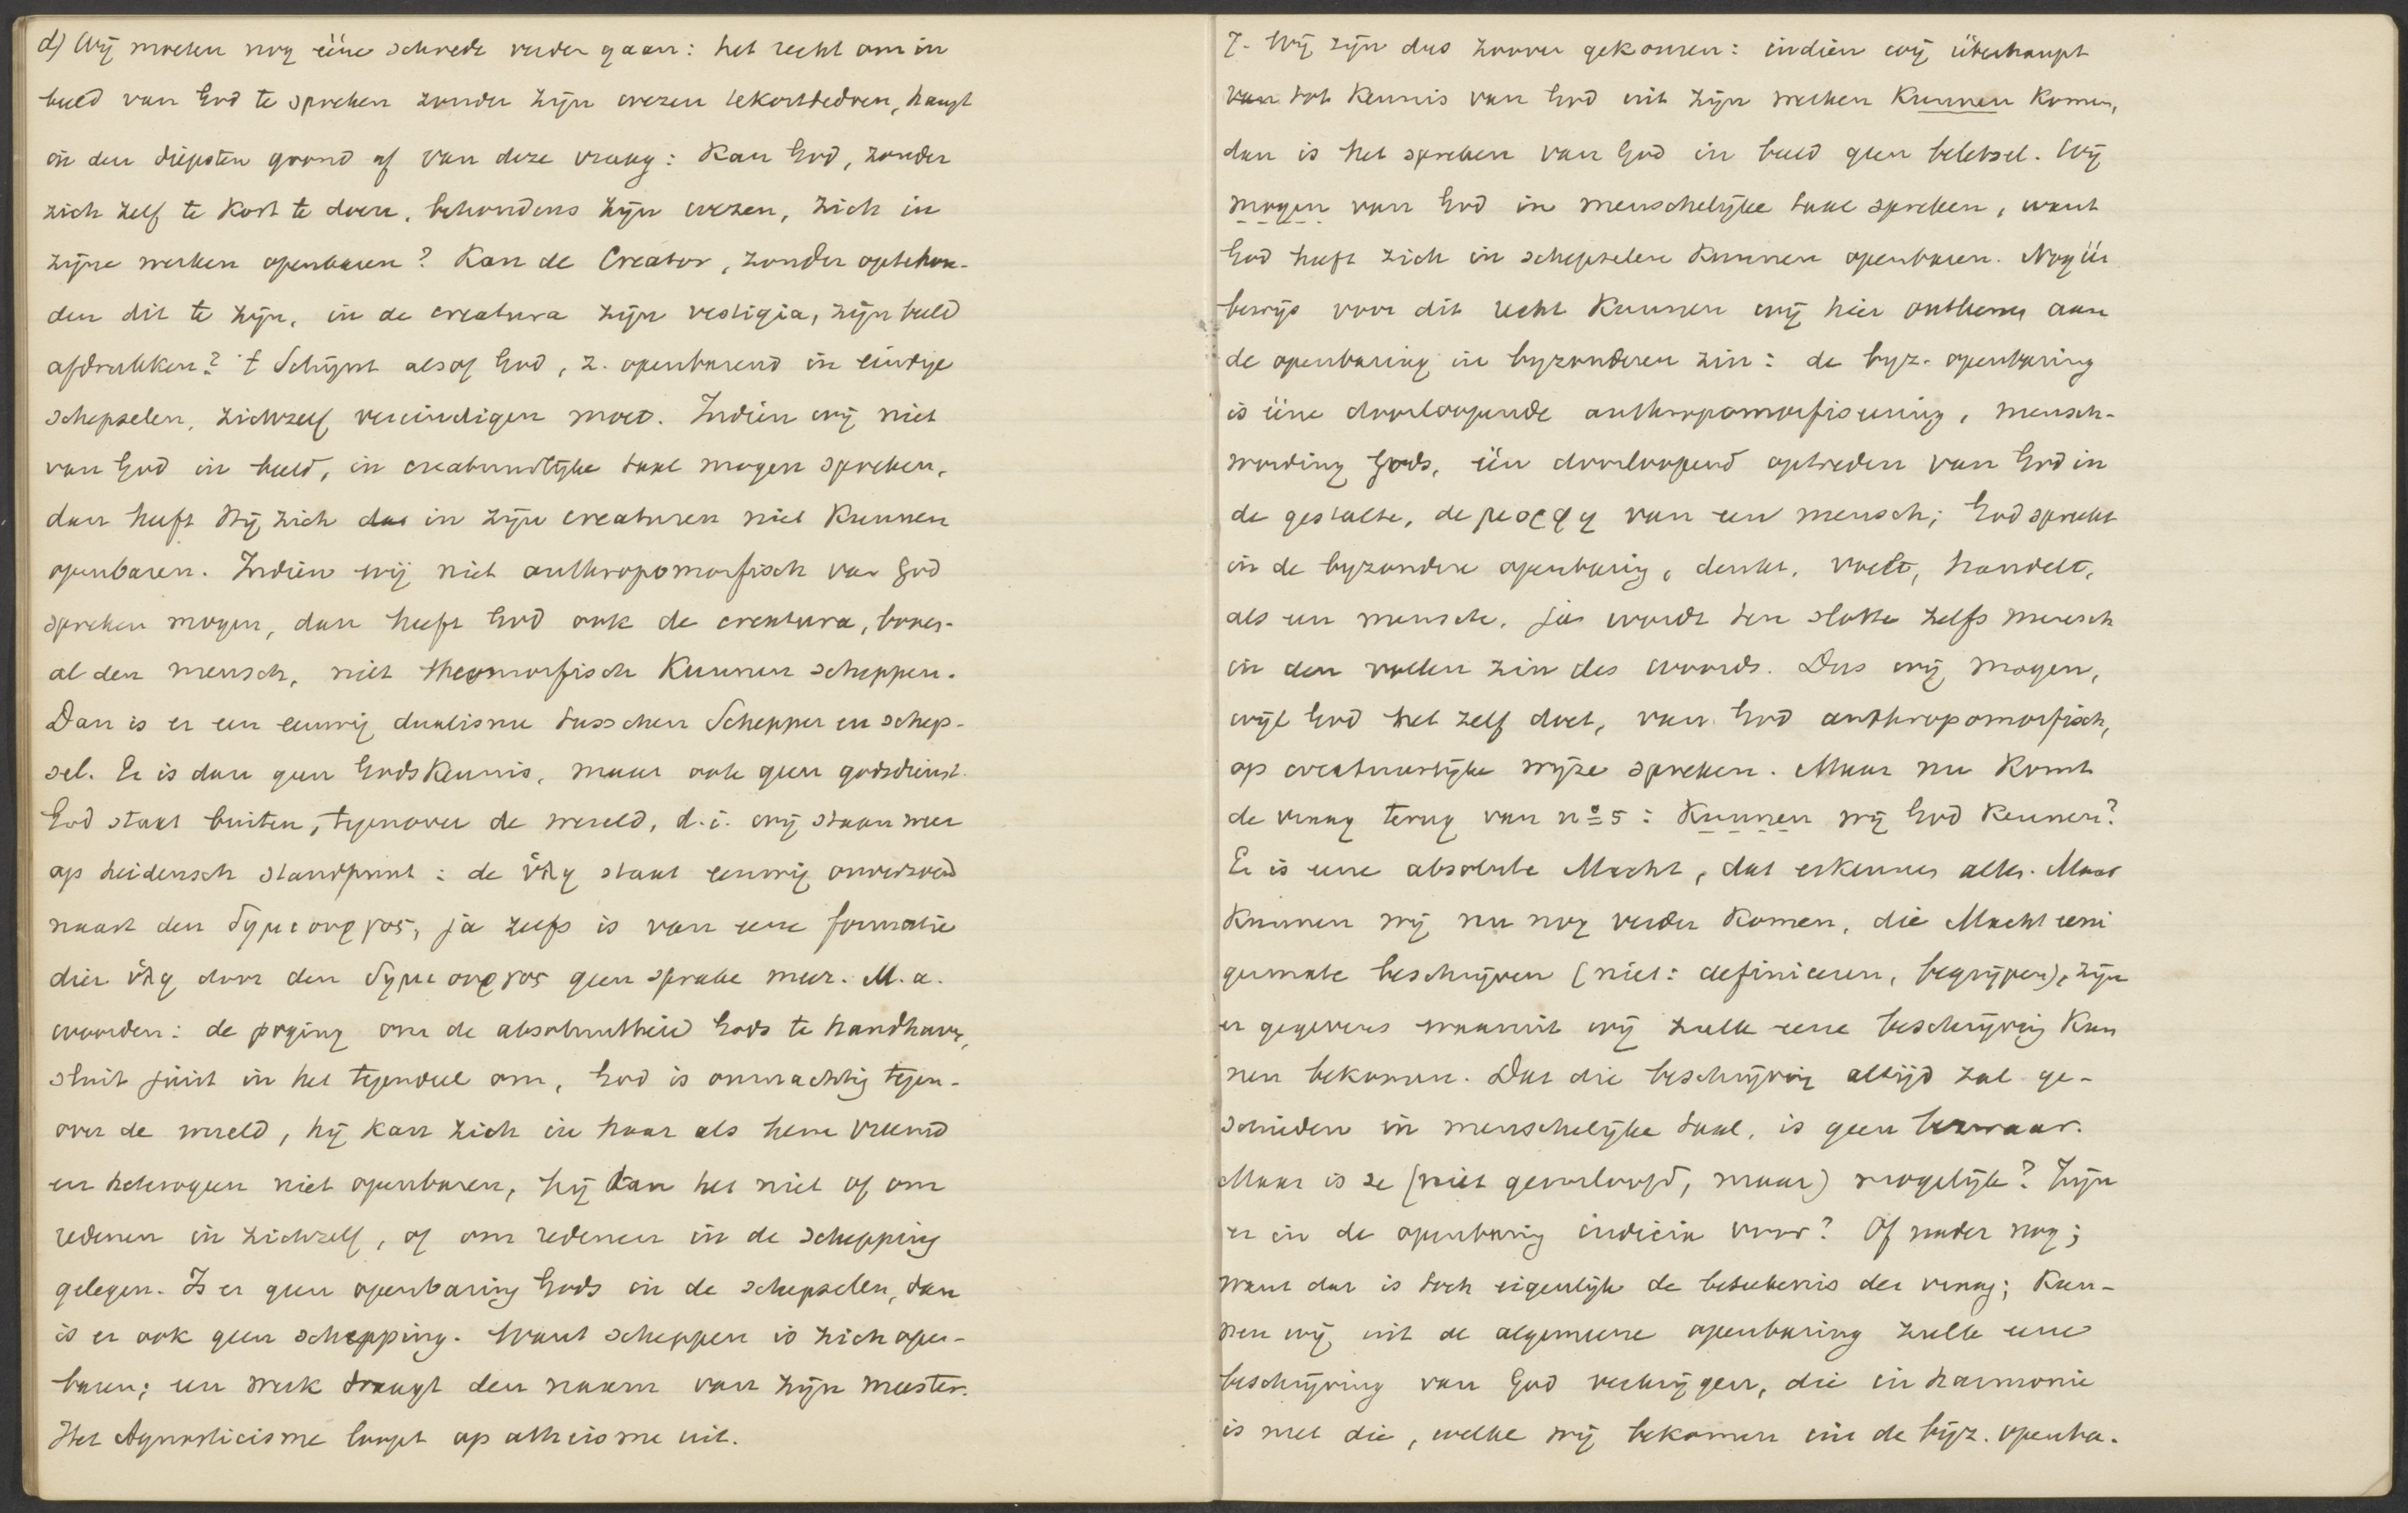 d) Wij moeten nog ééne schrede verder gaan: het recht om in
beeld van God te spreken zonder zijn wezen tekorttedoen, hangt
in den diepsten grond af van deze vraag: Kan God, zonder
zich zelf te kort te doen, behoudens zijn wezen, zich in
zijne werken openbaren? Kan de Creator, zonder optehou-
den dit te zijn, in de creatura zijn vestigia, zijn beeld
afdrukken? 't Schijnt alsof God, z. openbarend in eindige
schepselen, zichzelf vereindigen moet. Indien wij niet
van God in beeld, in creatuurlijke taal mogen spreken,
dan heeft Hij zich in zijn creaturen niet kunnen
openbaren. Indien wij niet anthropomorfisch van God
spreken mogen, dan heeft God ook de creatura, boven-
al den mensch, niet theomorfisch kunnen scheppen.
Dan is er een eeuwig dualisme tusschen Schepper en schep-
sel. Er is dan geen GodsKennis, maar ook geen godsdienst.
God staat buiten, tegenover de wereld, d.i. wij staan weer
op heidensch standpunt: de ὕλη staat eeuwig onverzoend
naast den δημιουργος, ja zelfs is van eene formatie
dier ὕλη door den δημιουργος geen sprake meer. M.a.
woorden: de poging om de absoluutheid Gods te handhaven,
sluit juist in het tegendeel om, God is onmachtig tegen-
over de wereld, hij kan zich in haar als hem vreemd
en heterogeen niet openbaren, hij kan het niet of om
redenen in zichzelf, of om redenen in de schepping
gelegen. Is er geen openbaring Gods in de schepselen, dan
is er ook geen schepping. Want scheppen is zich open-
baren; een werk draagt den naam van zijn meester.
Het Agnosticisme loopt op atheisme uit.
7. Wij zijn dus zoover gekomen: indien wij überhaupt
van tot Kennis van God uit zijn werken kunnen komen,
dan is het spreken van God in beeld geen beletsel. Wij
mogen van God in menschelijke taal spreken, want
God heeft zich in schepselen kunnen openbaren. Nog één
bewijs voor dit recht kunnen wij hier ontleenen aan
de openbaring in byzonderen zin: de byz. openbaring
is ééne doorloopende anthropomorfiseering, mensch-
wording Gods, één doorloopend optreden van God in
de gestalte, de μορφη van een mensch; God spreekt
in de byzondere openbaring, denkt, voelt, handelt,
als een mensch, ja wordt ten slotte zelfs mensch
in den vollen zin des woords. Dus wij mogen,
wijl God het zelf doet, van God anthropomorfisch,
op creatuurlijke wijze spreken. Maar nu komt
de vraag terug van no 5: Kunnen wij God kennen?
Er is eene absolute Macht, dat erkennen allen. Maar
kunnen wij nu nog verder komen, die Macht eeni
germate beschrijven (niet: definieeren, begrijpen), zijn
er gegevens waaruit wij zulk eene beschrijving kun
nen bekomen. Dat die beschrijving altijd zal ge-
schieden in menschelijke taal, is geen bezwaar.
Maar is ze (niet geoorloofd, maar) mogelijk? Zijn
er in de openbaring indicia voor? Of nader nog;
want dat is toch eigenlijk de beteekenis der vraag; Kun-
nen wij uit de algemeene openbaring zulk eene
beschrijving van God verkrijgen, die in harmonie
is met die, welke wij bekomen uit de byz. openba-